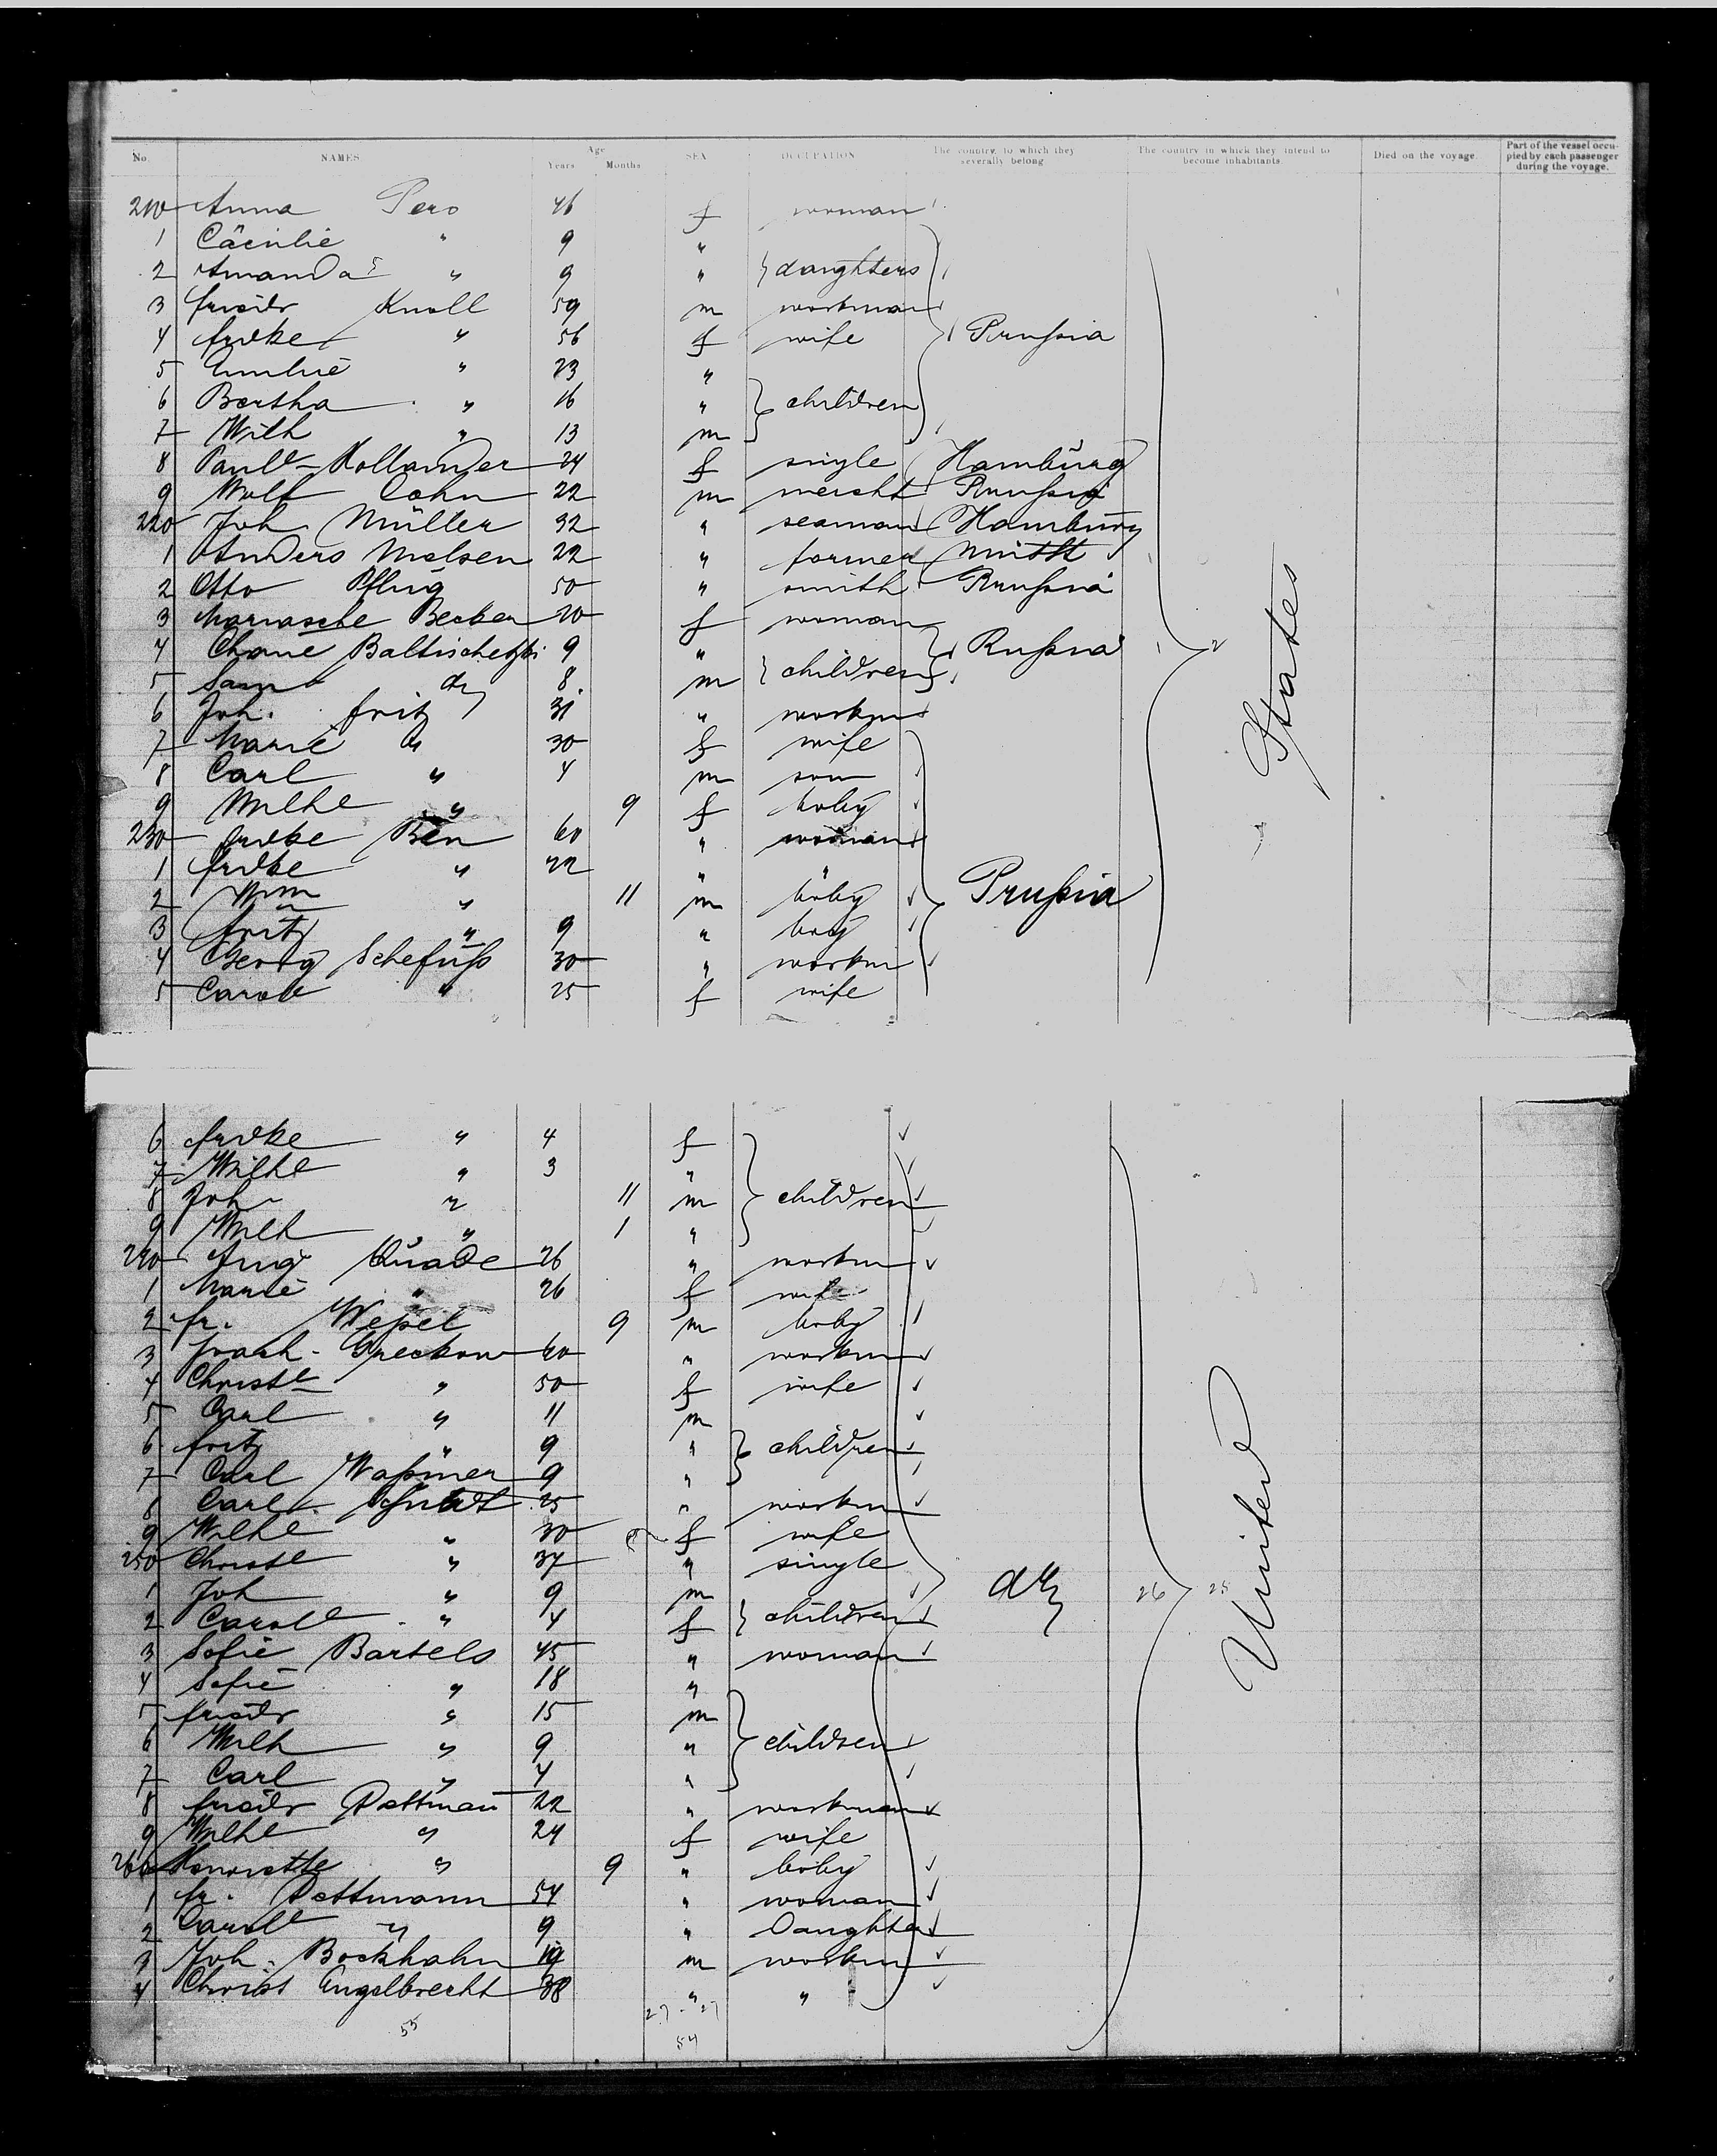 No. NAMES Age Years Months SEX OCCUPATION The country to which they severally belong The country in which they intend to become inhabitants. Died on the voyage. Part of the vessel occupied by each passenger during the voyage.
210 Anna Pero 46 f woman
1 Cäcilie " 9 "
2 Amanda " 9 " daughters
3 Friedr Knoll 59 m workman
4 Fredke " 56 f wife Prußia
5 Emilie " 23 "
6 Bertha " 16 " children
7 Wilh " 13 m
8 Paule Hollander 24 f single Hamburg
9 Wolf Cohn 22 m mercht Prußia
220 Joh Müller 32 " seaman Hamburg
1 Anders Nielsen 22 " farmer
2 Otto Pflug 50 " smith Prußia
3 Mariasche Becker 20 f woman
4 Chane 9 " Rußia
5 8 m children
6 Joh. Fritz 31 " workm
7 Marie " 30 f wife
8 Carl " 4 m son
9 Wilhe " 9 f baby
230 Fredke Ben 60 " woman
1 Fredke " 22 "
2 Wm " 11 m baby Prußia
3 Fritz " 9 " boy
4 Georg Schefuß 30 " workm
5 Carole " 25 f wife
6 Fredke " 4 f
7 Wilhe " 3 "
8 Joh " 11 m children
9 Wilh " 1 "
240 Aug Quade 26 " workm
1 Marie " 26 f wife
2 fr. Weßel 9 m baby
3 Joach. Greckow 60 " workm
4 Christe " 50 f wife
5 Carl " 11 m
6 Fritz " 9 " children
7 Carl Waßmer 9 "
8 Carl 25 " workm
9 Wilhe " 30 f wife
250 Christe " 37 " single
1 Joh " 9 m do 26 25
2 Carole " 4 f children
3 Sofie Bartels 45 " woman
4 Sofie " 18 "
5 Friedr " 15 m
6 Wilh " 9 " children
7 Carl " 4 "
8 Friedr Dettman 22 " workman
9 Wilhe " 24 f wife
260 Henriette " 9 " baby
1 fr. Dettmann 54 " woman
2 Carole " 9 " Daughter
3 Joh. Bockhahn 19 m workm
4 Christ Engelbrecht 38 " "
55 27 27
54
United States